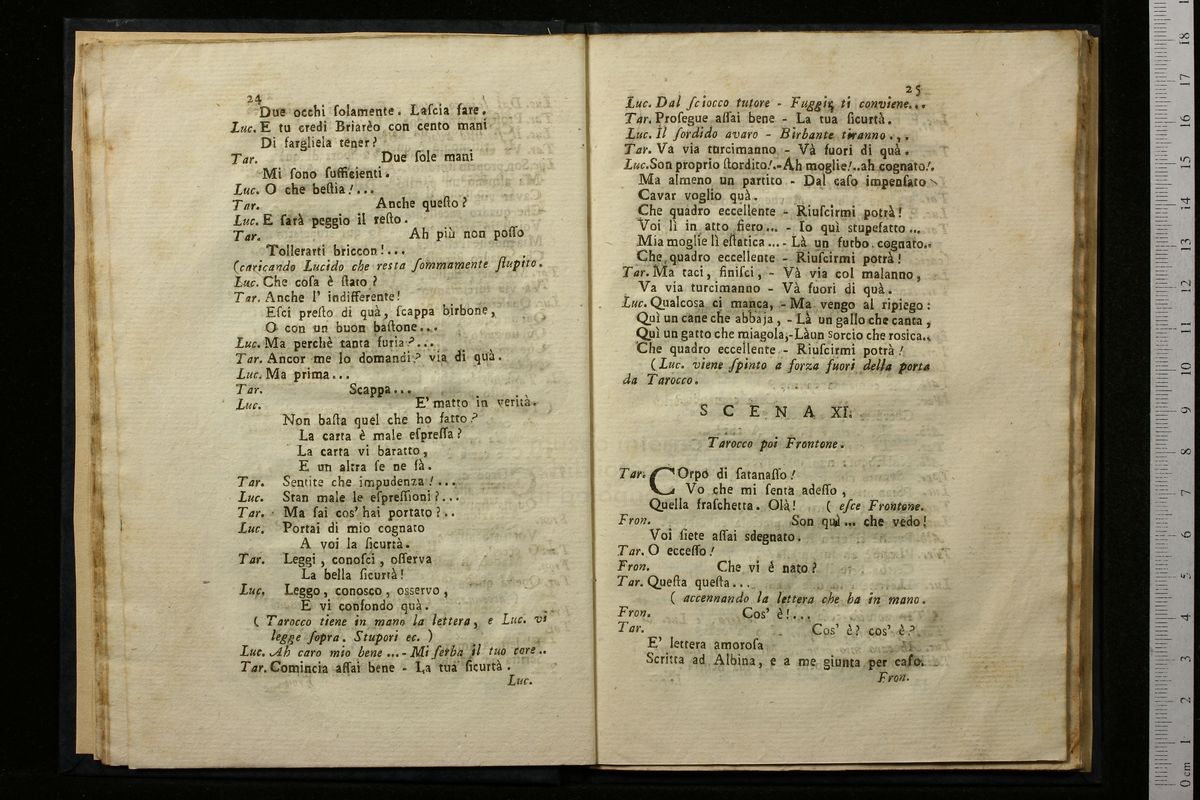 24
Due occhi ſolamente. Laſcia fare.
Luc. E tu credi Briarèo con cento mani
Di fargliela tener?
Tar. Due ſole mani
Mi ſono ſufficienti.
Luc. O che beſtia!...
Tar. Anche queſto?
Luc. E ſarà peggio il reſto.
Tar. Ah più non poſſo
Tollerarti briccon!...
(caricando Lucido che reſta ſommamente ſtupito.
Luc. Che coſa è ſtato?
Tar. Anche l' indifferente!
Eſci preſto di quà, ſcappa birbone,
O con un buon baſtone...
Luc. Ma perchè tanta furia?...
Tar. Ancor me lo domandi? via di quà.
Luc. Ma prima...
Tar. Scappa...
Luc. E' matto in verità.
Non baſta quel che ho fatto?
La carta è male eſpreſſa?
La carta vi baratto,
E un altra ſe ne fà.
Tar. Sentite che impudenza!...
Luc. Stan male le eſpreſſioni?...
Tar. Ma ſai cos' hai portato?..
Luc. Portai di mio cognato
A voi la ſicurtà.
Tar. Leggi, conoſci, oſſerva
La bella ſicurtà!
Luc. Leggo, conosco, osservo,
E vi confondo quà.
( Tarocco tiene in mano la lettera, e Luc. vi
legge ſopra. Stupori ec. )
Luc. Ah caro mio bene... - Mi ſerba il tuo core..
Tar. Comincia aſſai bene - La tua ſicurtà.
Luc.
25
Luc. Dal ſciocco tutore - Fuggir ti conviene...
Tar. Proſegue aſſai bene - La tua ſicurtà.
Luc. Il ſordido avaro - Birbante tiranno...
Tar. Va via turcimanno - Và fuori di quà.
Luc. Son proprio ſtordito!.- Ah moglie!..ah cognato!.
Ma almeno un partito - Dal caſo impenſato
Cavar voglio quà.
Che quadro eccellente - Riuſcirmi potrà!
Voi lì in atto fiero... - Io quì stupefatto...
Mia moglie lì eſtatica... - Là un furbo cognato..
Che quadro eccellente - Riuſcirmi potrà!
Tar. Ma taci, finiſci, - Và via col malanno,
Va via turcimanno - Và fuori di quà.
Luc. Qualcosa ci manca, - Ma vengo al ripiego:
Quì un cane che abbaja, - Là un gallo che canta,
Quì un gatto che miagola,- Là un sorcio che rosica..
Che quadro eccellente - Riuſcirmi potrà!
(Luc. viene ſpinto a forza fuori della porta
da Tarocco.
SCENA XI.
Tarocco poi Frontone.
Tar. COrpo di ſatanaſſo!
Vo che mi ſenta adeſſo,
Quella fraſchetta. Olà! ( eſce Frontone.
Fron. Son quì... che vedo!
Voi ſiete aſſai sdegnato.
Tar. O ecceſſo!
Fron. Che vi è nato?
Tar. Queſta queſta...
( accennando la lettera che ha in mano.
Fron. Cos' è!...
Tar. Cos' è? cos' è?
E' lettera amoroſa
Scritta ad Albina, e a me giunta per caſo.
Fron.
0 cm 1 2 3 4 5 6 7 8 9 10 11 12 13 14 15 16 17 18